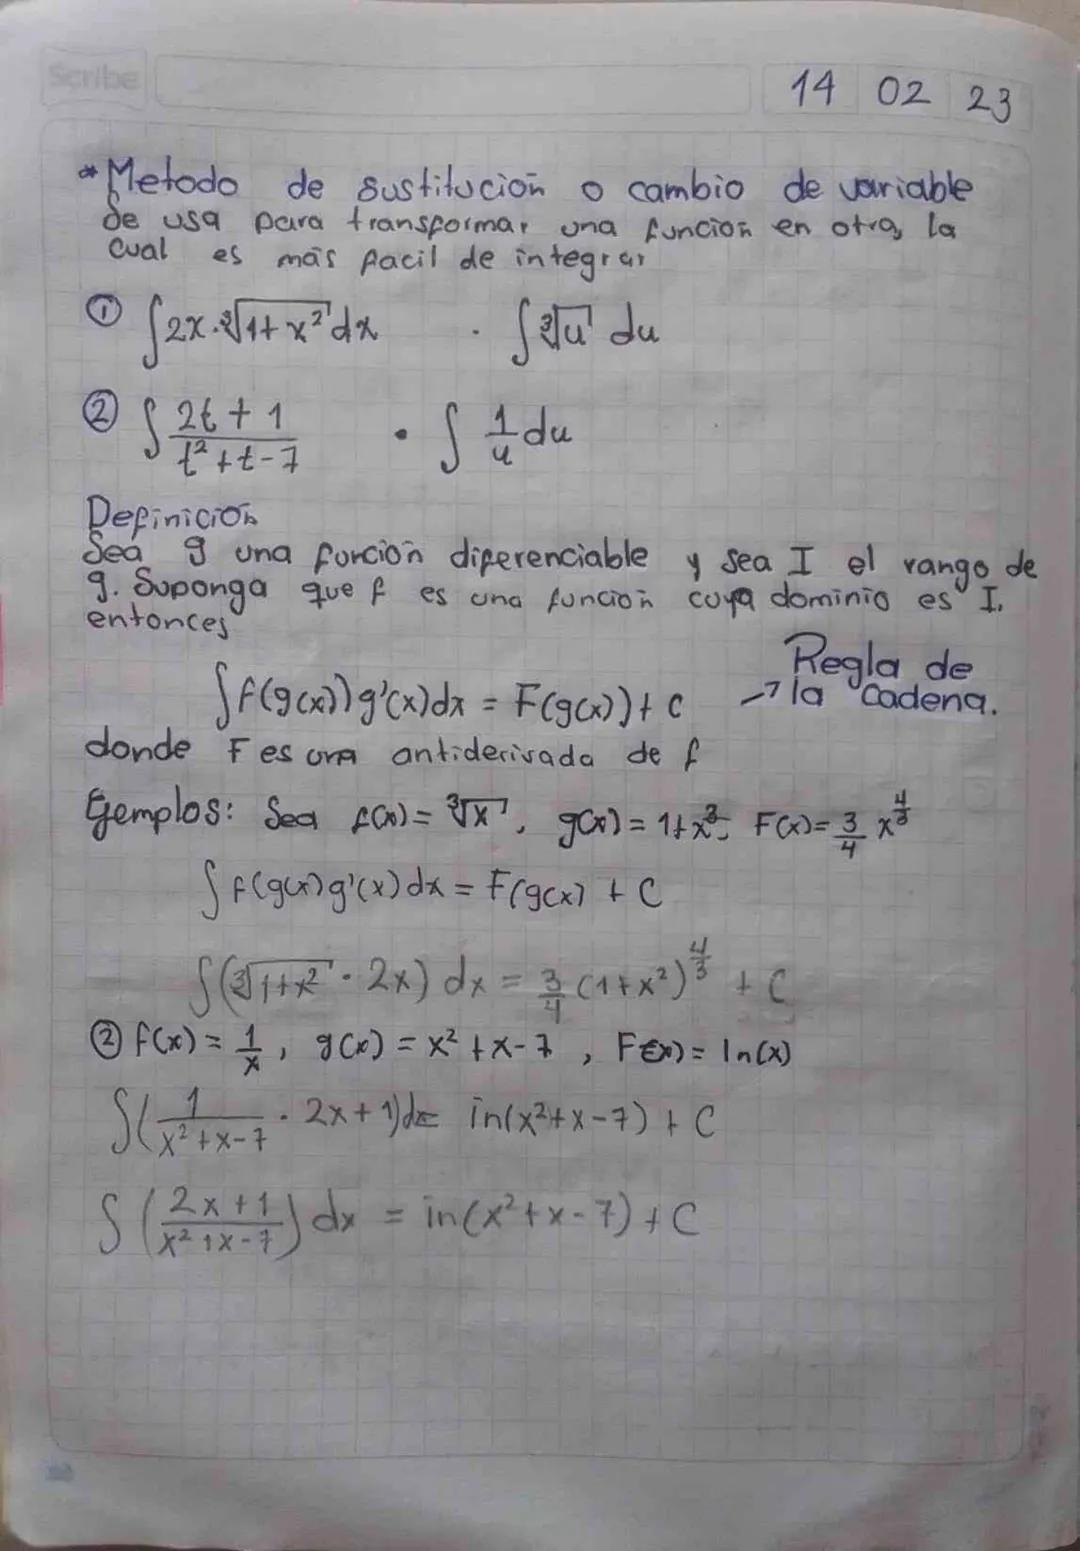 Scribe
14 02 23
* Metodo de sustitución o cambio de variable
Se usa para transformar una función en otra, la
cual es más facil de integrar
① ∫2x·∛(1+x²) dx · ∫∛u du
② ∫ (2t+1)/(t²+t-7) · ∫ 1/u du
Definición
Sea g una función diferenciable y sea I el rango de
g. Suponga que f es una función cuya dominio es I.
entonces
Regla de
∫f(g(x))g'(x)dx = F(g(x))+c → la Cadena.
donde F es una antiderivada de f
Ejemplos: Sea f(x)=∛x, g(x)=1+x², F(x)=3/4 x^(4/3)
∫f(g(x)g'(x)dx = F(g(x) + C
∫(∛(1+x²) · 2x) dx = 3/4 (1+x²)^(4/3) + C
② f(x) = 1/x, g(x) = x²+x-7, F(x) = ln(x)
∫(1/(x²+x-7) · 2x+1)dx= in(x²+x-7) + C
∫((2x+1)/(x²+x-7)) dx = in(x²+x-7)+C